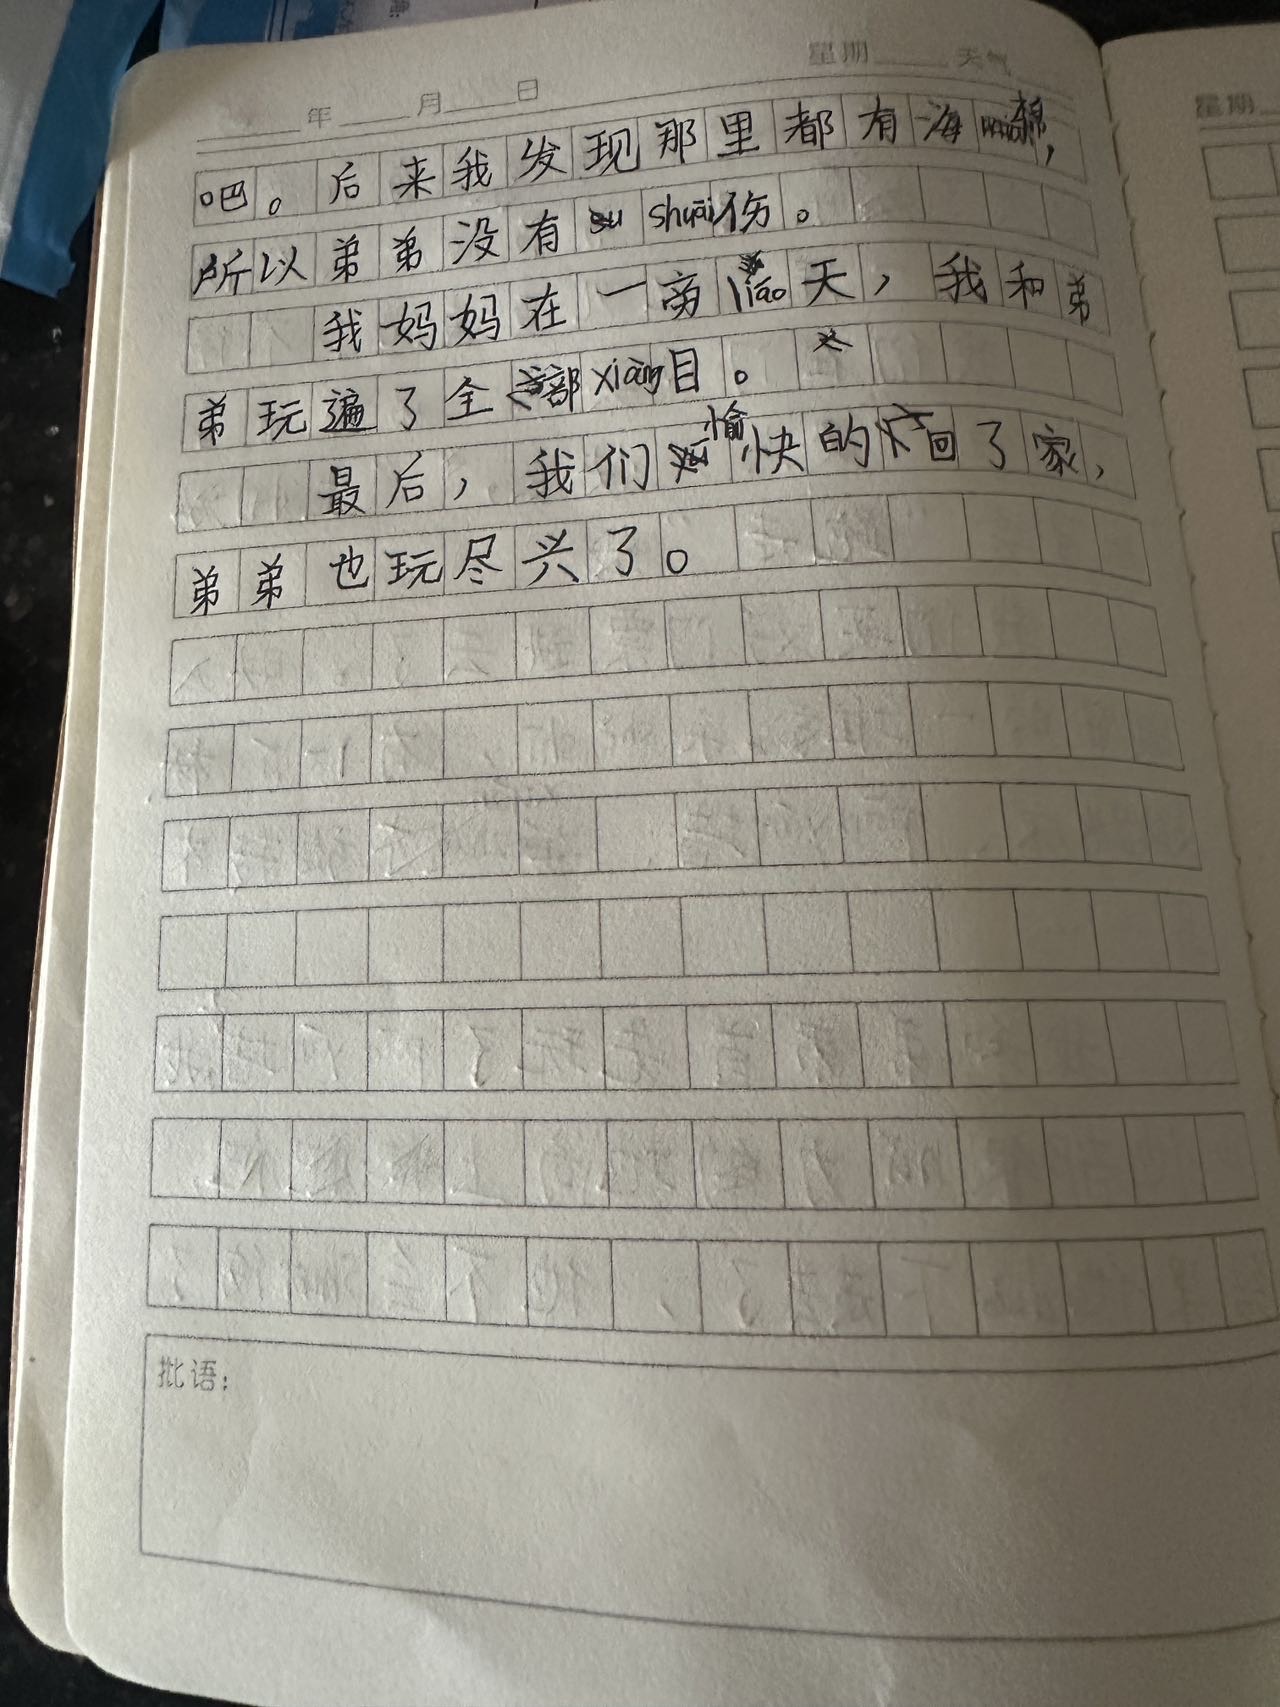 年 月 日 星期 天气
吧。后来我发现那里都有海棉，
所以弟弟没有shuāi伤。
我妈妈在一旁liáo天，我和弟
弟玩遍了全部xiàng目。
最后，我们愉快的回了家，
弟弟也玩尽兴了。
批语：
星期